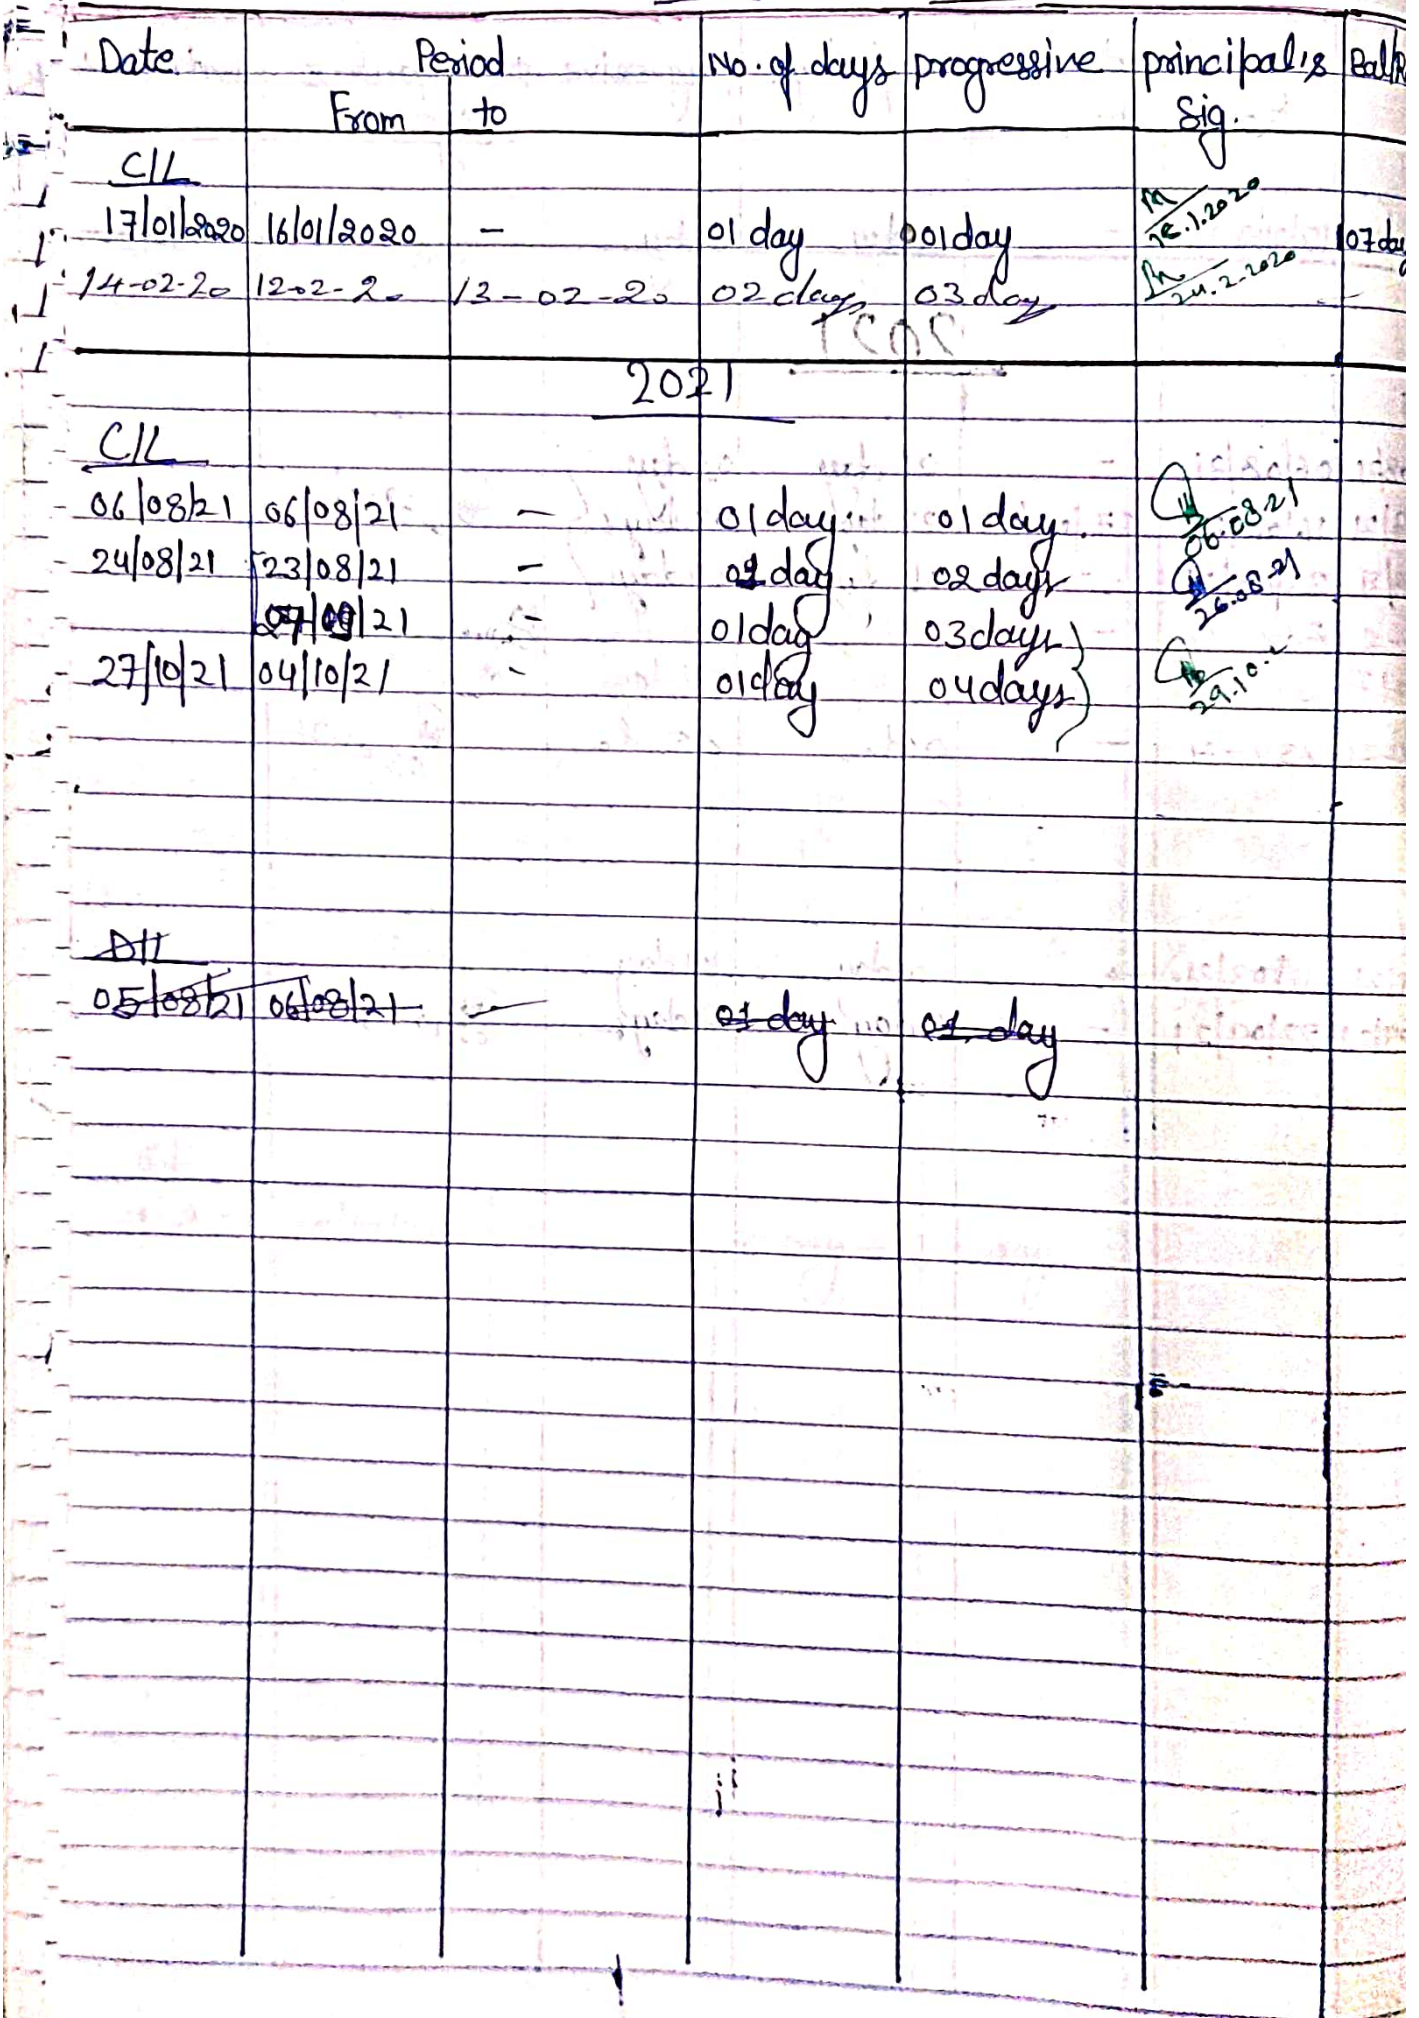 Date Period No. of days progressive principal's Bal/R
From to Sig.
C/L
17/01/2020 16/01/2020 - 01 day 01 day .1.2020 07 day
14-02-20 12-02-20 13-02-20 02 days 03 day 24.2.2020
2021
C/L
06/08/21 06/08/21 - 01 day 01 day 06.08.21
24/08/21 23/08/21 - 01 day 02 days 26.08.21
/21 - 01 day 03 days
27/10/21 04/10/21 - 01 day 04 days 29.10.
D/L
05/08/21 06/08/21 - 01 day 01 day